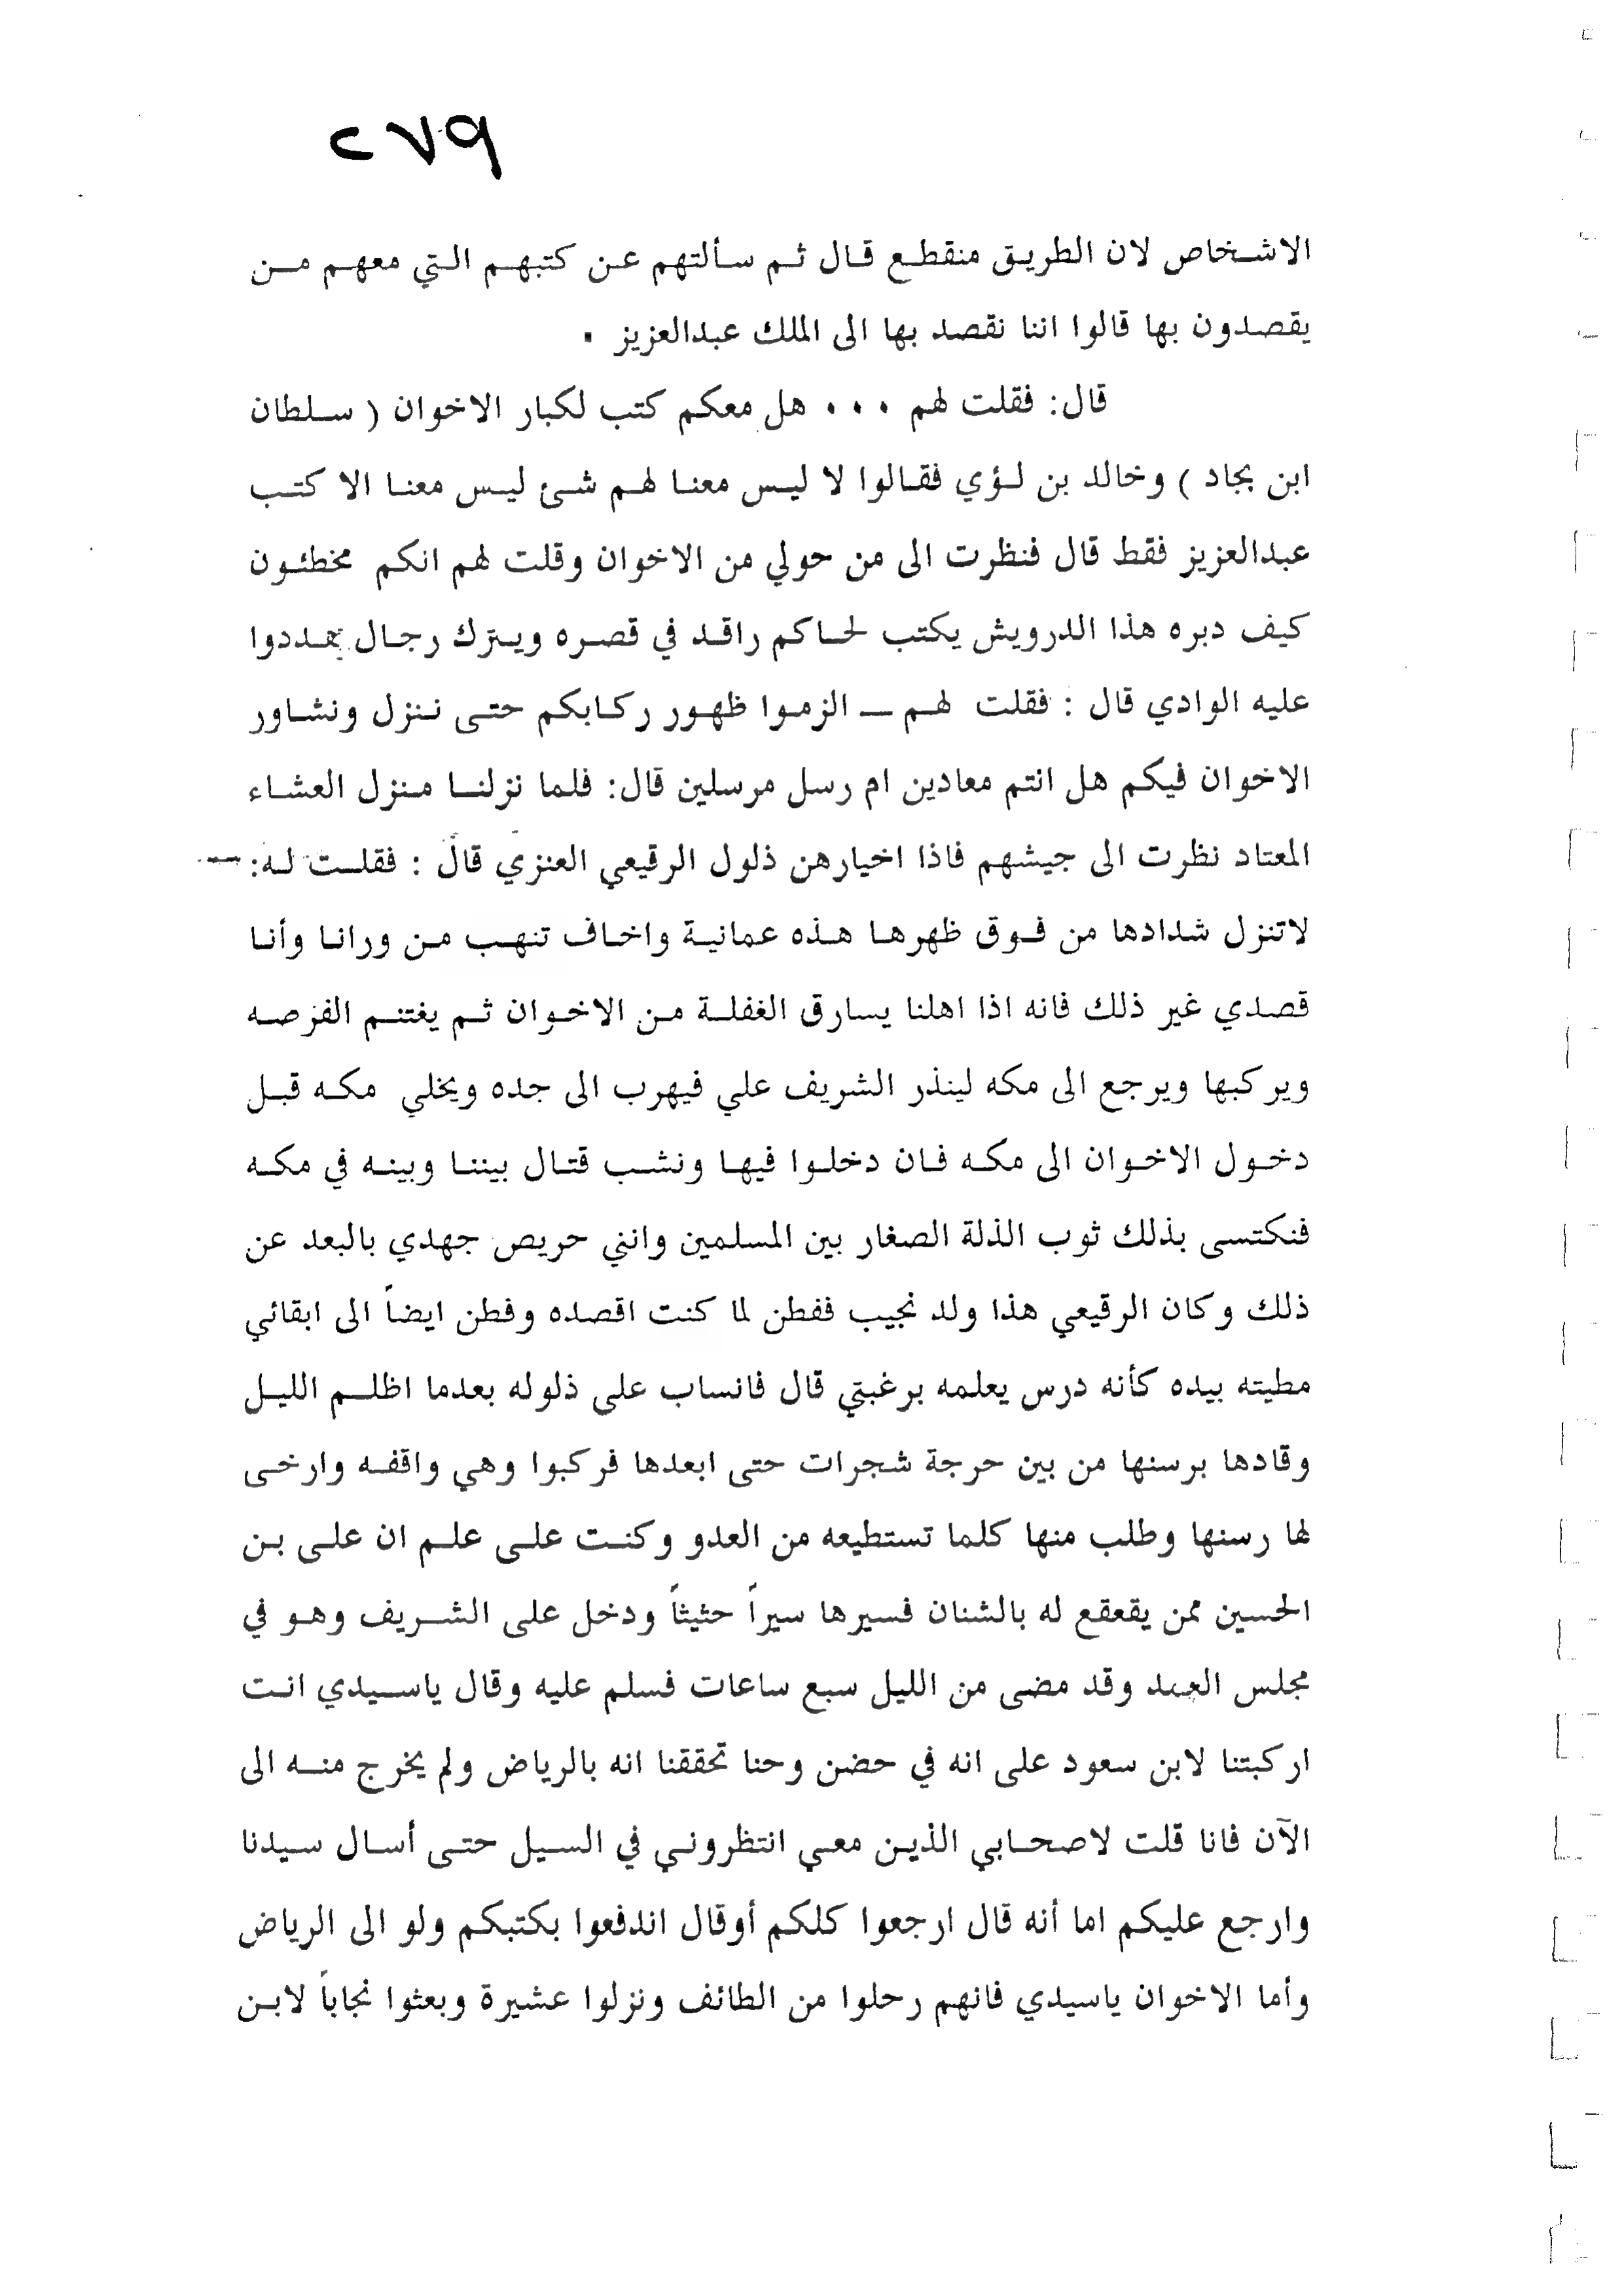 ٢٧٩
الاشخاص لان الطريق منقطع قال ثم سألتهم عن كتبهم التي معهم من
يقصدون بها قالوا اننا نقصد بها الى الملك عبدالعزيز .
قال: فقلت لهم ... هل معكم كتب لكبار الاخوان ( سلطان
ابن بجاد ) وخالد بن لؤي فقالوا لا ليس معنا لهم شئ ليس معنا الا كتب
عبدالعزيز فقط قال فنظرت الى من حولي من الاخوان وقلت لهم انكم مخطئون
كيف دبره هذا الدرويش يكتب لحاكم راقد في قصره ويترك رجال يمددوا
عليه الوادي قال : فقلت لهم – الزموا ظهور ركابكم حتى ننزل ونشاور
الاخوان فيكم هل انتم معادين ام رسل مرسلين قال: فلما نزلنا منزل العشاء
المعتاد نظرت الى جيشهم فاذا اخيارهن ذلول الرقيعي العنزي قال : فقلت له: –
لاتنزل شدادها من فوق ظهرها هذه عمانية واخاف تنهب من ورانا وأنا
قصدي غير ذلك فانه اذا اهلنا يسارق الغفلة من الاخوان ثم يغتنم الفرصه
ويركبها ويرجع الى مكه لينذر الشريف علي فيهرب الى جده ويخلي مكه قبل
دخول الاخوان الى مكه فان دخلوا فيها ونشب قتال بيننا وبينه في مكه
فنكتسى بذلك ثوب الذلة الصغار بين المسلمين وانني حريص جهدي بالبعد عن
ذلك وكان الرقيعي هذا ولد نجيب ففطن لما كنت اقصده وفطن ايضاً الى ابقائي
مطيته بيده كأنه درس يعلمه برغبتي قال فانساب على ذلوله بعدما اظلم الليل
وقادها برسنها من بين حرجة شجرات حتى ابعدها فركبوا وهي واقفه وارخى
لها رسنها وطلب منها كلما تستطيعه من العدو وكنت على علم ان على بن
الحسين ممن يقعقع له بالشنان فسيرها سيراً حثيثاً ودخل على الشريف وهو في
مجلس العمد وقد مضى من الليل سبع ساعات فسلم عليه وقال ياسيدي انت
اركبتنا لابن سعود على انه في حضن وحنا تحققنا انه بالرياض ولم يخرج منه الى
الآن فانا قلت لاصحابي الذين معي انتظروني في السيل حتى أسال سيدنا
وارجع عليكم اما أنه قال ارجعوا كلكم أوقال اندفعوا بكتبكم ولو الى الرياض
وأما الاخوان ياسيدي فانهم رحلوا من الطائف ونزلوا عشيرة وبعثوا نجاباً لابن